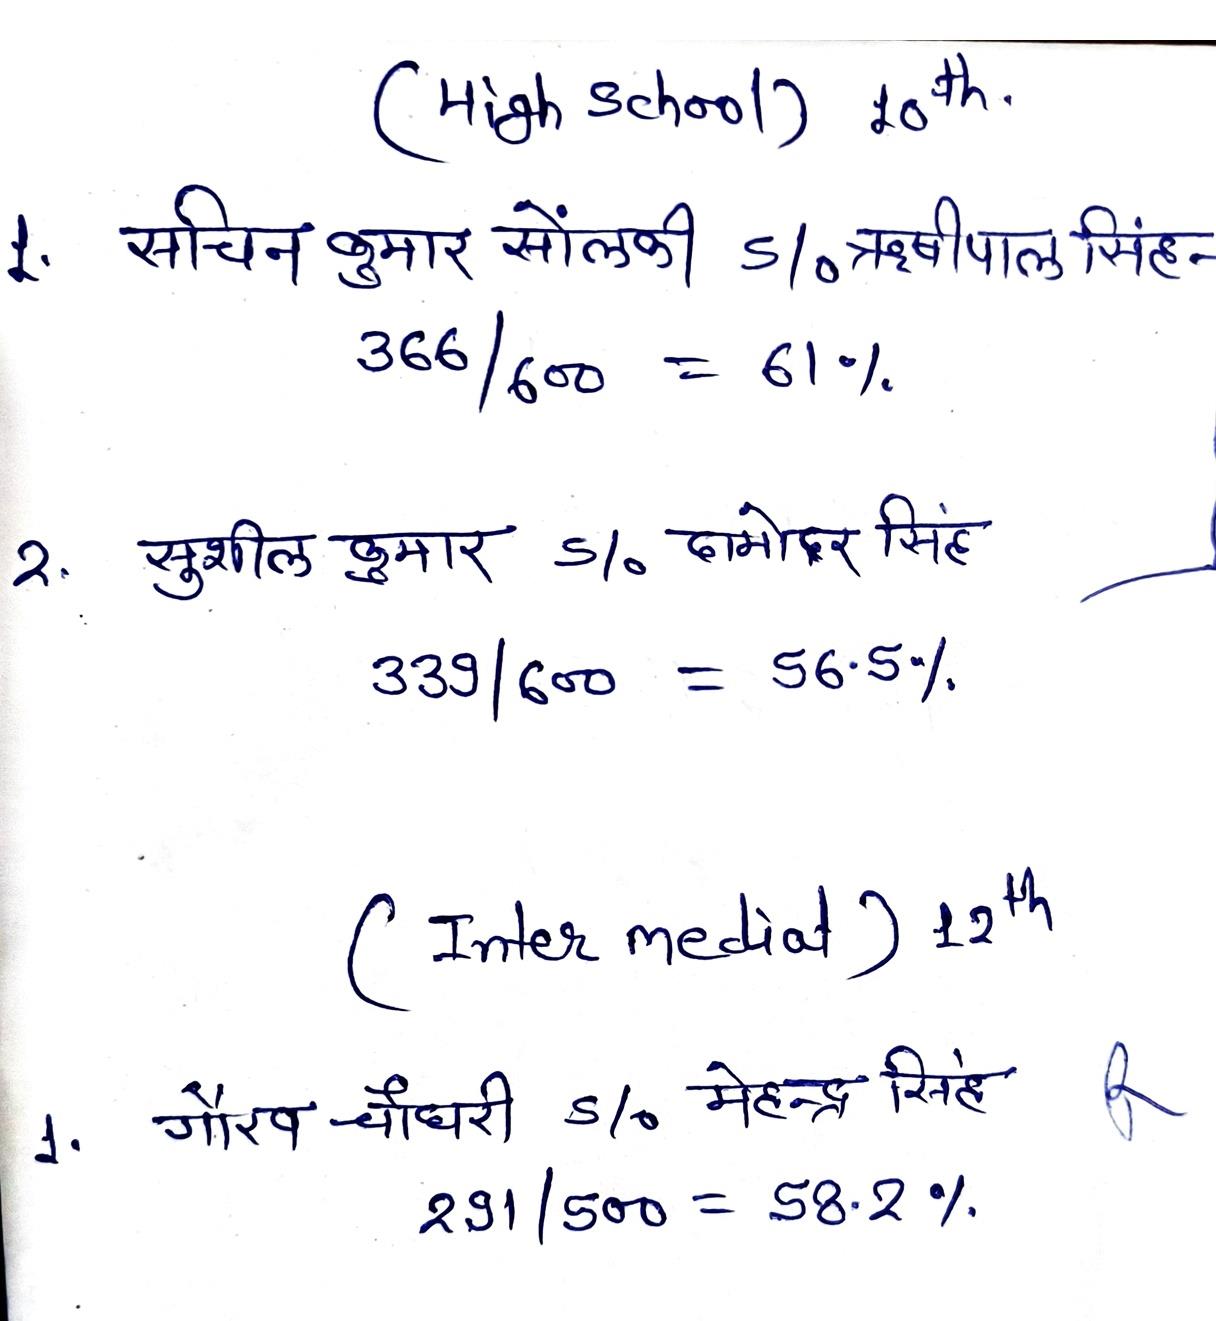 (High School) 10th.
1. सचिन कुमार सोंलकी S/o ऋषीपाल सिंह-
366/600 = 61%.
2. सुशील कुमार S/o दामोदर सिंह
339/600 = 56.5%.
(Inter mediat) 12th
1. गौरव चौधरी S/o मेहन्द्र सिंह
291/500 = 58.2%.